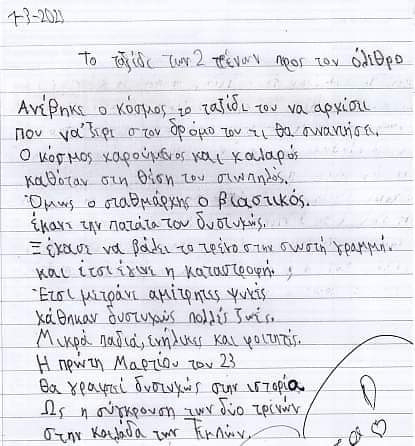 7-3-2021
Το ταξίδι των 2 τρένων προς τον όλεθρο
Ανέβηκε ο κόσμος το ταξίδι του να αρχίσει
που να'ξερι στον δρόμο του τι θα συναντήσει.
Ο κόσμος χαρούμενος και χαλαρός
καθόταν στη θέση του σιωπηλός.
Όμως ο σταθμάρχης ο βιαστικός.
έκανε την πατάτα του δυστυχώς.
Ξέχασε να βάλει το τρένο στην σωστή γραμμή.
και έτσι έγινε η καταστροφή.
Έτσι μετράνε αμέτρητες ψυχές
χάθηκαν δυστυχώς πολλές ζωές.
Μικρά παιδιά, ενήλικες και φοιτητές.
Η πρώτη Μαρτίου του 23
θα γραφτεί δυστυχώς στην ιστορία
Ως η σύγκρουση των δύο τρένων
στην κοιλάδα των Τεμπών